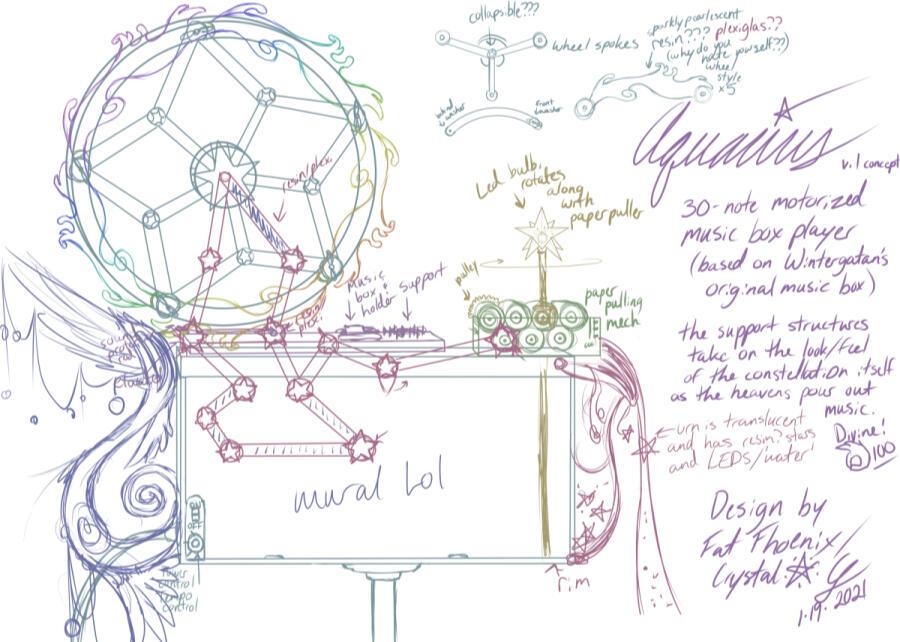 collapsible???
wheel spokes
behind
washer
front
washer
sparkly pearlescent
resin??? plexiglas??
(why do you
hate yourself??)
wheel
style
x5
Aquarius
v.1 concept
30-note motorized
music box player
(based on Wintergatan's
original music box)
the support structures
take on the look/feel
of the constellation itself
as the heavens pour out
music.
Divine!
100
Led bulb
rotates
along
with
paper puller
pulley
paper
pulling
mech
resin/plex.
music
box
holder
support
resin
plexi
sound
mural lol
power
control
tempo
control
rim
urn is translucent
and has resin? stars
and LEDS/water!
Design by
Fat Fhoenix/
Crystal
1.19.2021